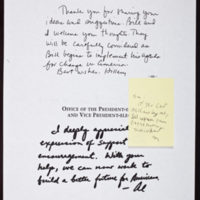 Thank you for sharing your
ideas and suggestions. Bill and
I welcome your thoughts. They
will be carefully considered as
Bill begins to implement his agenda
for change in America.
Best wishes, Hillary
OFFICE OF THE PRESIDENT-
AND VICE PRESIDENT-EL
I deeply appreciat
expression of support
encouragement. With your
help, we can now work to
build a better future for America.
Al